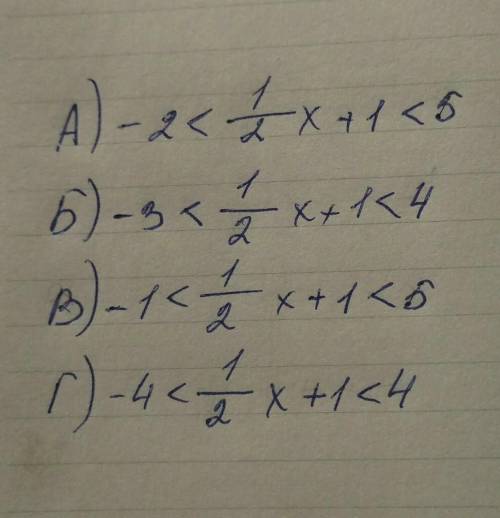 А) -2 < 1/2 x + 1 < 5
Б) -3 < 1/2 x + 1 < 4
В) -1 < 1/2 x + 1 < 5
Г) -4 < 1/2 x + 1 < 4